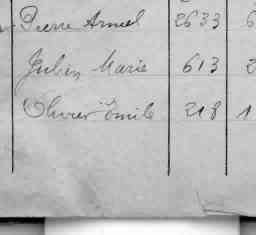 Pierre Armel 2633 6
Julien Marie 613 2
Olivier Emile 218 1